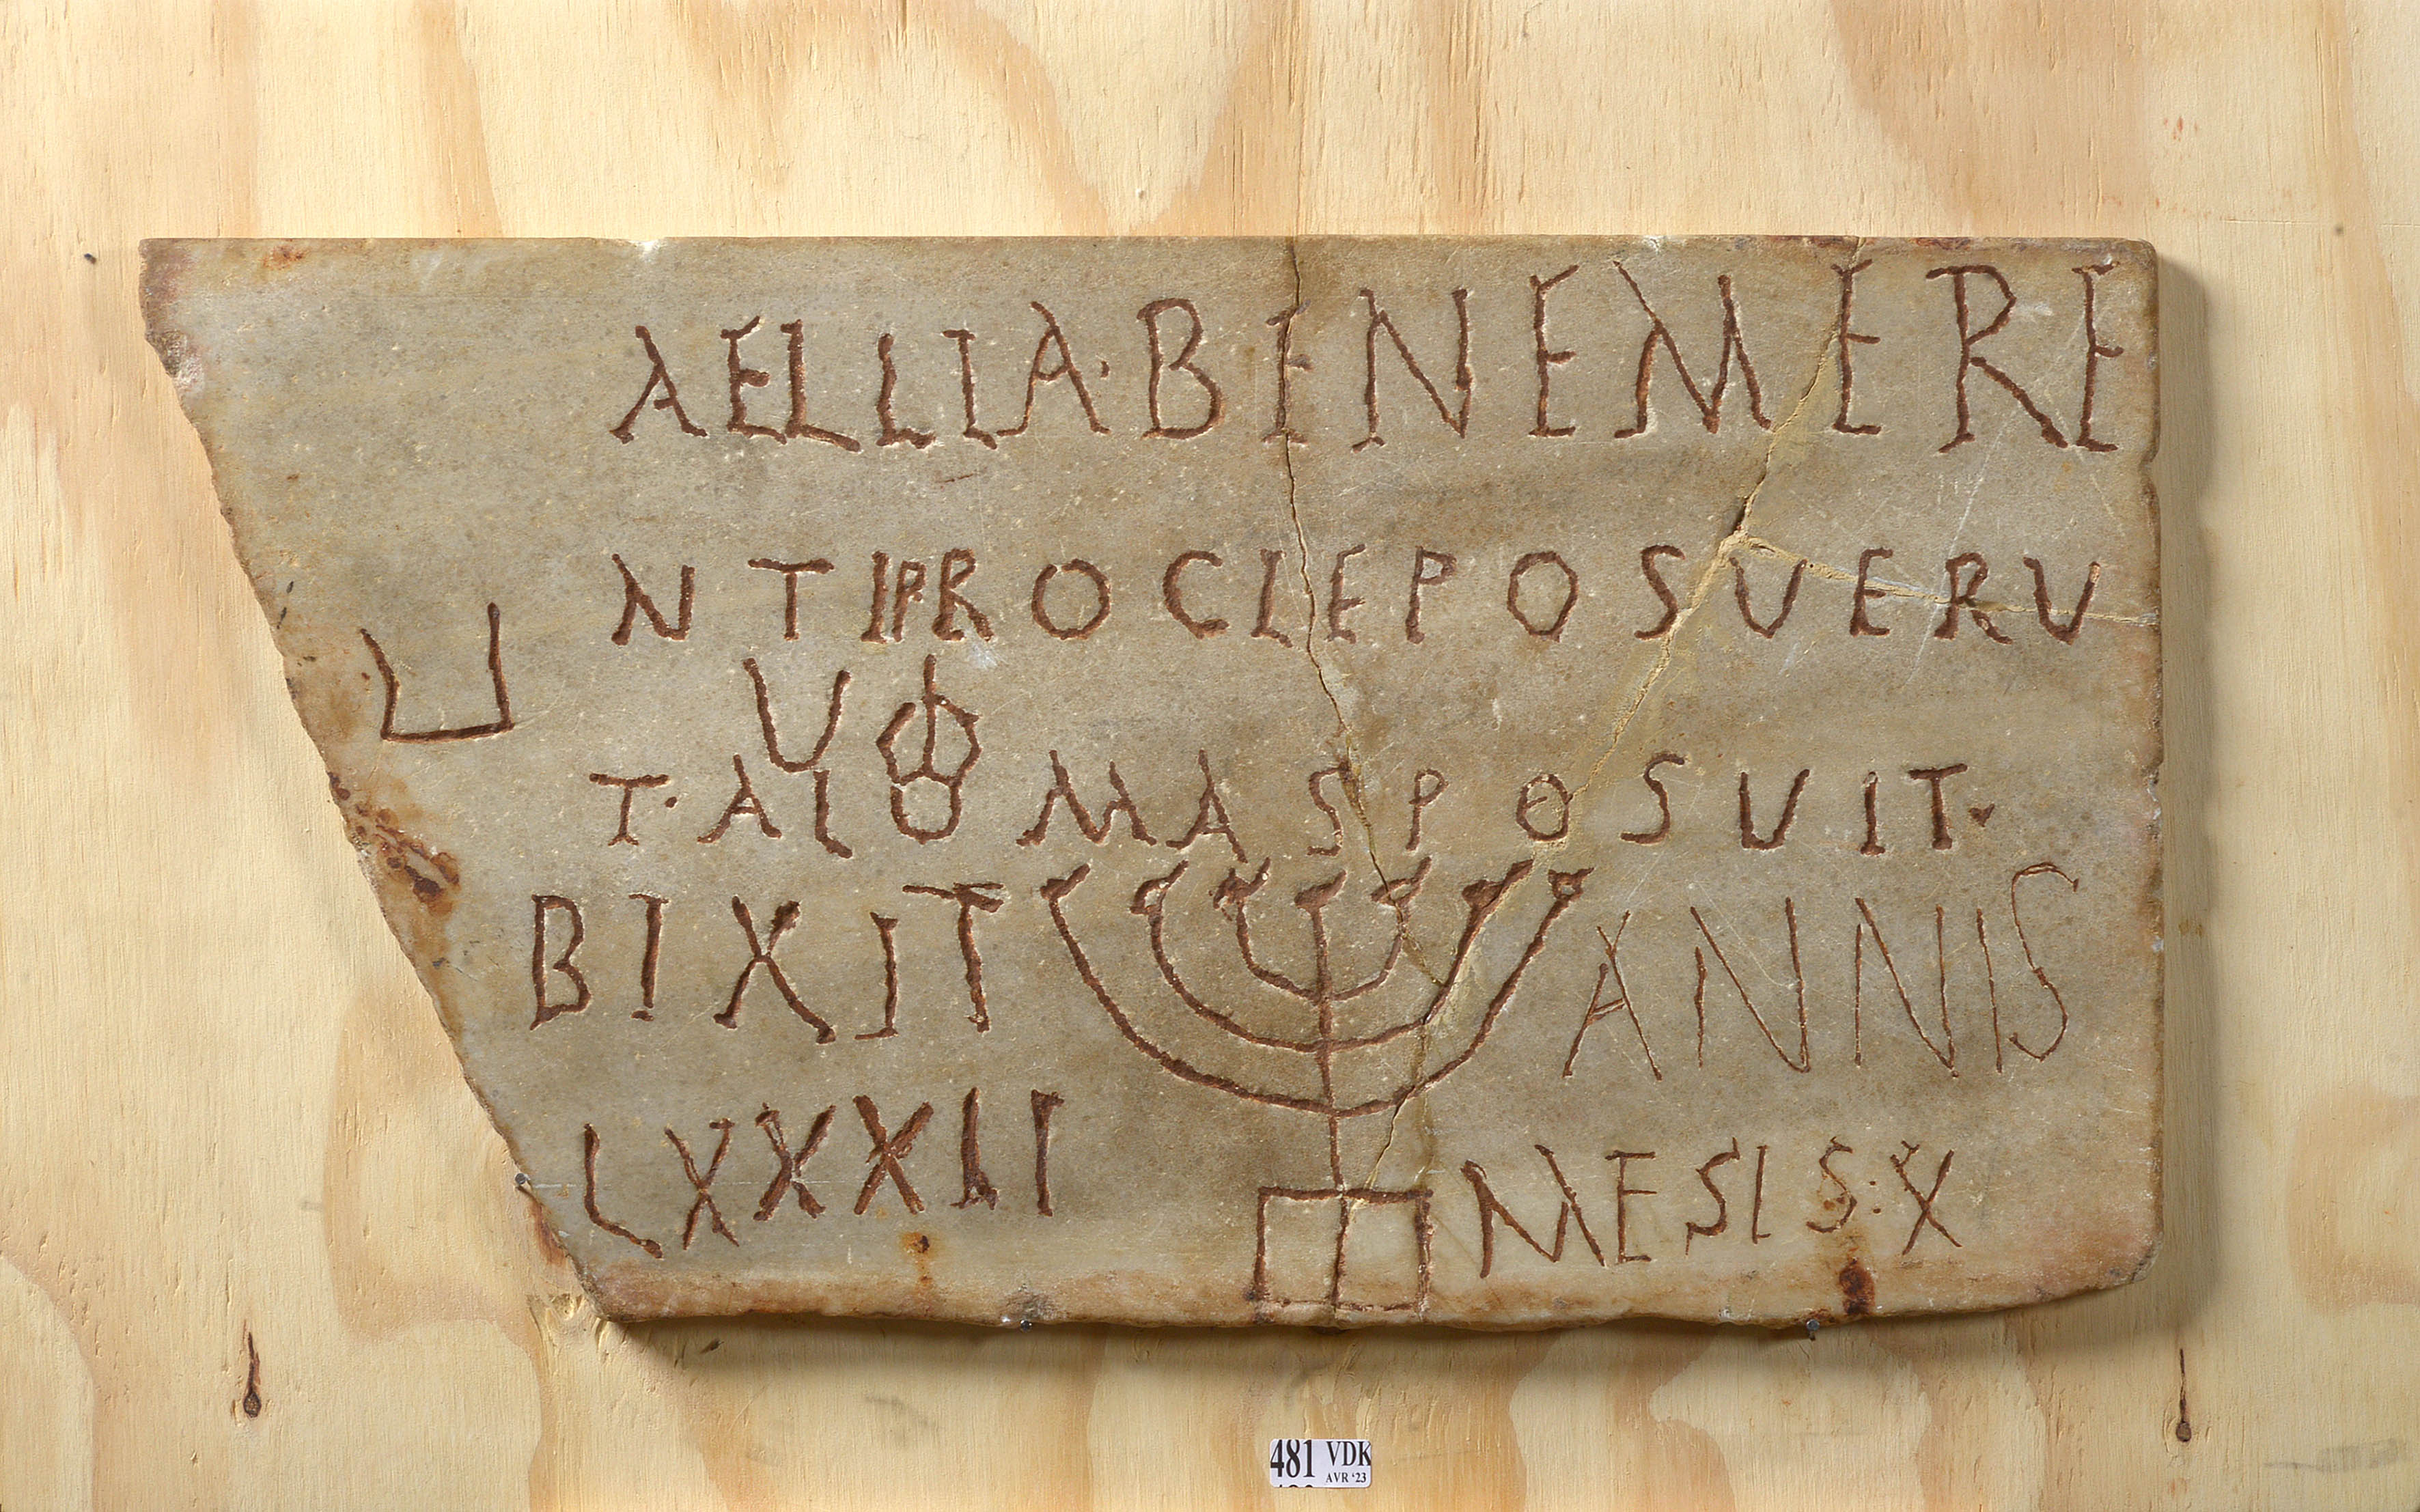 AELLIA·BENEMERE
NTIPROCLEPOSUERU
T·ALUMASPOSUIT·
BIXIT ANNIS
LXXXII MESIS:X
481 VDK
AVR '23